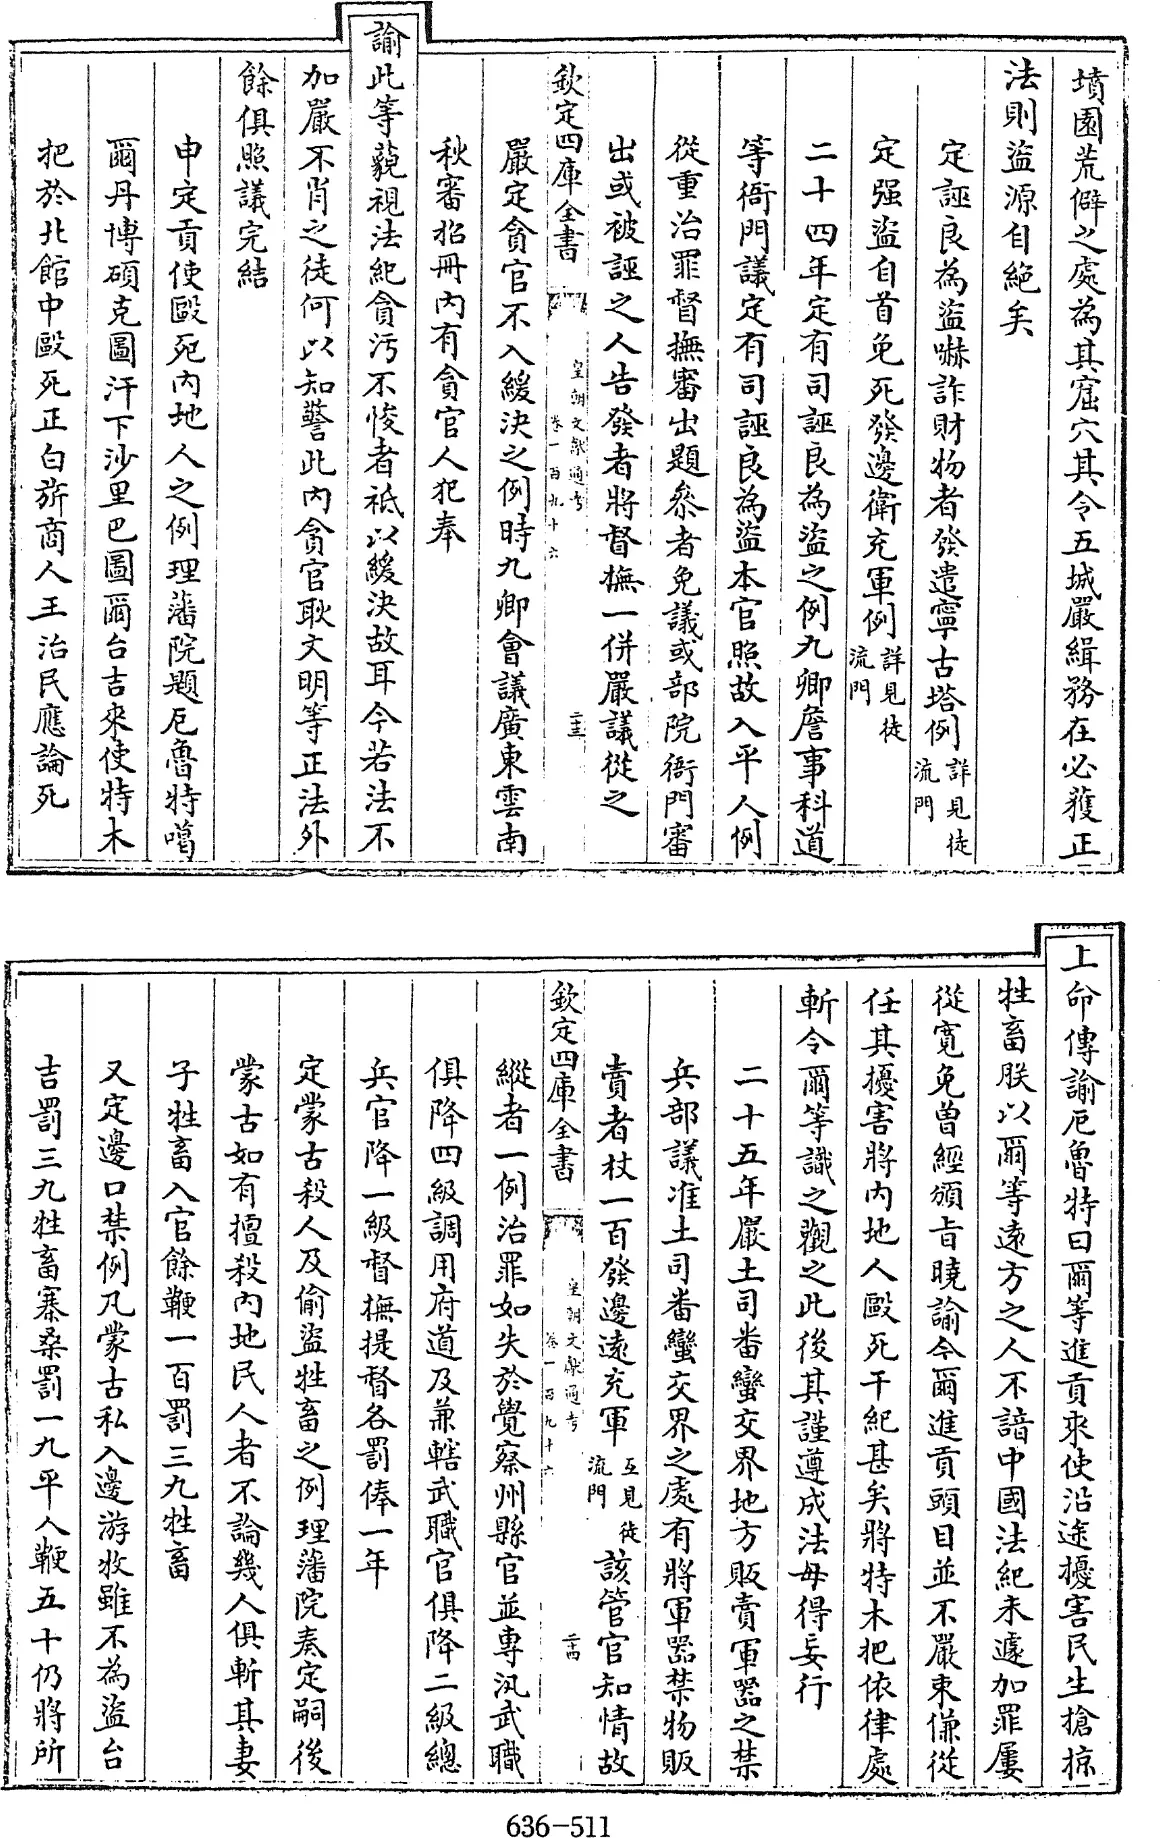 墳園荒僻之處為其窟穴其令五城嚴緝務在必獲正
法則盜源自絶矣
定誣良為盜嚇詐財物者發遣寧古塔例詳見徒流門
定强盜自首免死發邊衛充軍例詳見徒流門
二十四年定有司誣良為盜之例九卿詹事科道
等衙門議定有司誣良為盜本官照故入平人例
從重治罪督撫審出題叅者免議或部院衙門審
出或被誣之人告發者將督撫一併嚴議從之
欽定四庫全書
皇朝文獻通考
卷一百九十六
二十三
嚴定貪官不入緩決之例時九卿會議廣東雲南
秋審招冊內有貪官人犯奉
諭此等藐視法紀貪污不悛者祗以緩決故耳今若法不
加嚴不肖之徒何以知警此內貪官耿文明等正法外
餘俱照議完結
申定貢使毆死內地人之例理藩院題厄魯特噶
爾丹博碩克圖汗下沙里巴圖爾台吉來使特木
把於北館中毆死正白旂商人王治民應論死
上命傳諭厄魯特曰爾等進貢來使沿途擾害民生搶掠
牲畜朕以爾等遠方之人不諳中國法紀未遽加罪屢
從寛免曽經頒旨曉諭今爾進貢頭目並不嚴束傔從
任其擾害將內地人毆死干紀甚矣將特木把依律處
斬令爾等識之觀之此後其謹遵成法毋得妄行
二十五年嚴土司畨蠻交界地方販賣軍器之禁
兵部議准土司畨蠻交界之處有將軍器禁物販
賣者杖一百發邊遠充軍互見徒流門該管官知情故
欽定四庫全書
皇朝文獻通考
卷一百九十六
二十四
縱者一例治罪如失於覺察州縣官並專汛武職
俱降四級調用府道及兼轄武職官俱降二級總
兵官降一級督撫提督各罰俸一年
定蒙古殺人及偷盜牲畜之例理藩院奏定嗣後
蒙古如有擅殺內地民人者不論幾人俱斬其妻
子牲畜入官餘鞭一百罰三九牲畜
又定邊口禁例凡蒙古私入邊游牧雖不為盜台
吉罰三九牲畜寨桑罰一九平人鞭五十仍將所
636-511